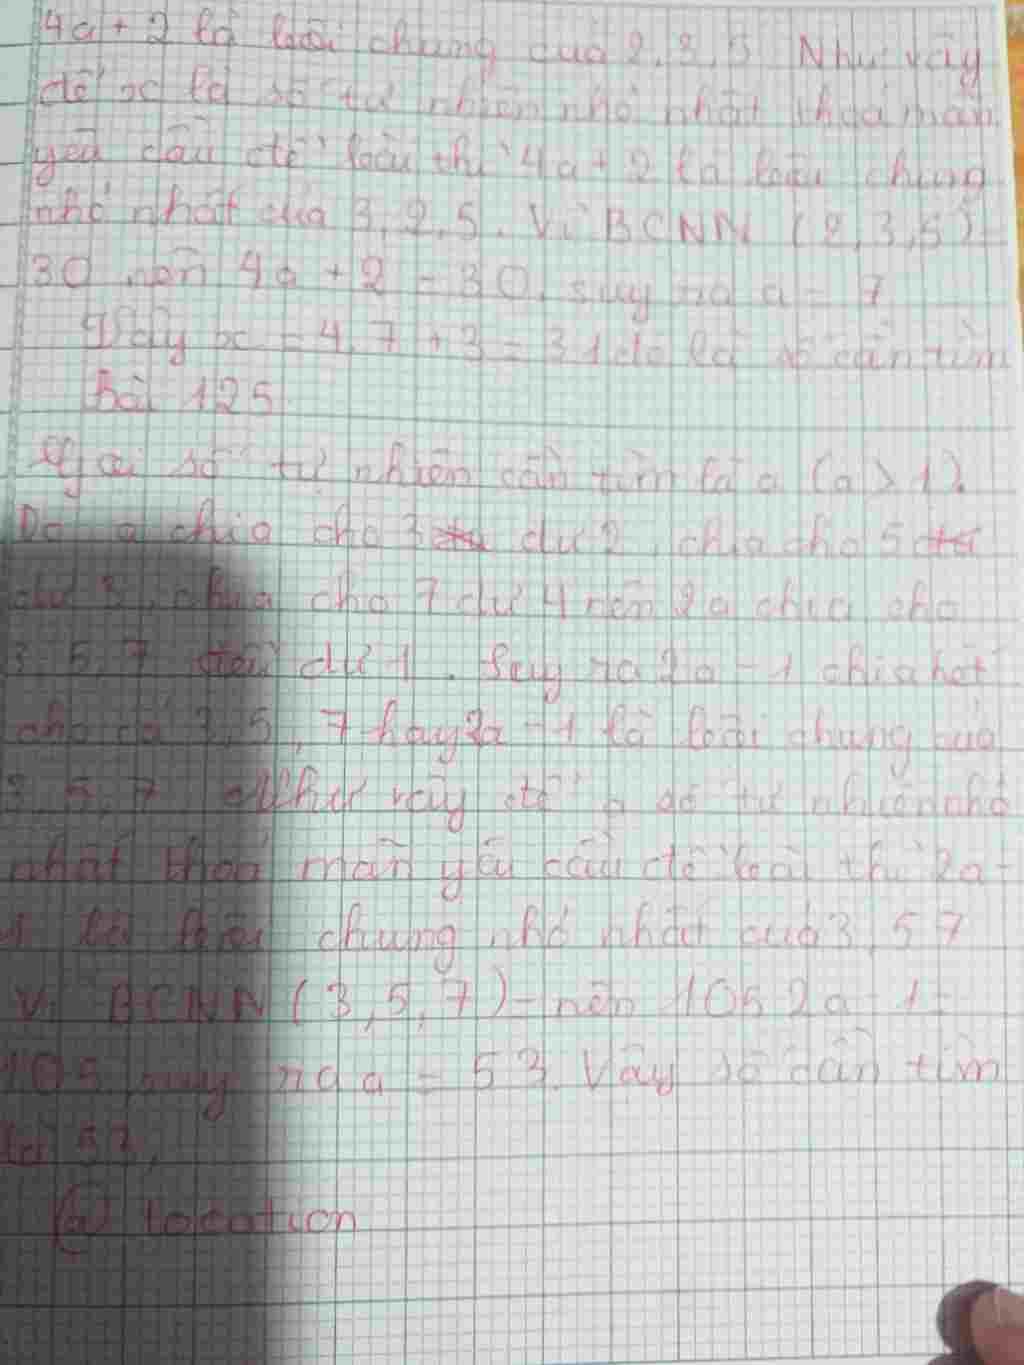 4a + 2 là bội chung của 2, 3, 5 Như vậy
để x là số tự nhiên nhỏ nhất thoả mãn
yêu cầu đề bài thì 4a + 2 là bội chung
nhỏ nhất của 3, 2, 5. Vì BCNN (2, 3, 5)
30 nên 4a + 2 = 30, suy ra a = 7
Vậy x = 4.7 + 3 = 31 đó là số cần tìm
Bài 125
Gọi số tự nhiên cần tìm là a (a > 1).
Do a chia cho 3 dư 2, chia cho 5
dư 3, chia cho 7 dư 4 nên 2a chia cho
3, 5, 7 dư 1. Suy ra 2a - 1 chia hết
cho cả 3, 5, 7 hay 2a - 1 là bội chung của
3, 5, 7 Như vậy để a số tự nhiên nhỏ
nhất thoả mãn yêu cầu đề bài thì 2a -
1 là bội chung nhỏ nhất của 3, 5 7
Vì BCNN (3, 5, 7) = nên 105 2a - 1 =
105 suy ra a = 53. Vậy số cần tìm
là 53,
a) location